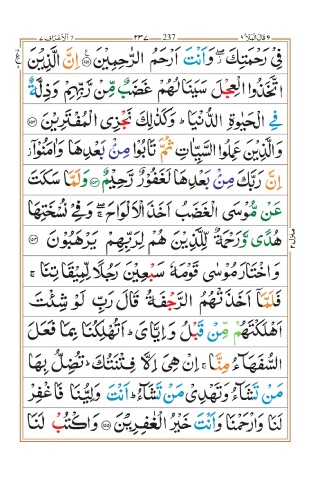 ٧ الاعراف ٧ ٢٣٧ 237 قال الملا ٩
فِىْ رَحْمَتِكَ ۖ وَاَنْتَ اَرْحَمُ الرّٰحِمِيْنَ ﴿١٥١﴾ اِنَّ الَّذِيْنَ
اتَّخَذُوا الْعِجْلَ سَيَنَالُهُمْ غَضَبٌ مِّنْ رَّبِّهِمْ وَذِلَّةٌ
فِى الْحَيٰوةِ الدُّنْيَا ؕ وَكَذٰلِكَ نَجْزِى الْمُفْتَرِيْنَ ﴿١٥٢﴾
وَالَّذِيْنَ عَمِلُوا السَّيِّاٰتِ ثُمَّ تَابُوْا مِنْۢ بَعْدِهَا وَاٰمَنُوْۤا ؗ
اِنَّ رَبَّكَ مِنْۢ بَعْدِهَا لَغَفُوْرٌ رَّحِيْمٌ ﴿١٥٣﴾ وَلَمَّا سَكَتَ
عَنْ مُّوْسَى الْغَضَبُ اَخَذَ الْاَلْوَاحَ ۖ وَفِىْ نُسْخَتِهَا
هُدًى وَّرَحْمَةٌ لِّلَّذِيْنَ هُمْ لِرَبِّهِمْ يَرْهَبُوْنَ ﴿١٥٤﴾
وَاخْتَارَ مُوْسٰى قَوْمَهٗ سَبْعِيْنَ رَجُلًا لِّمِيْقَاتِنَا ۚ
فَلَمَّاۤ اَخَذَتْهُمُ الرَّجْفَةُ قَالَ رَبِّ لَوْ شِئْتَ
اَهْلَكْتَهُمْ مِّنْ قَبْلُ وَاِيَّاىَ ؕ اَتُهْلِكُنَا بِمَا فَعَلَ
السُّفَهَآءُ مِنَّا ۚ اِنْ هِىَ اِلَّا فِتْنَتُكَ ؕ تُضِلُّ بِهَا
مَنْ تَشَآءُ وَتَهْدِىْ مَنْ تَشَآءُ ؕ اَنْتَ وَلِيُّنَا فَاغْفِرْ
لَنَا وَارْحَمْنَا وَاَنْتَ خَيْرُ الْغٰفِرِيْنَ ﴿١٥٥﴾ وَاكْتُبْ لَنَا